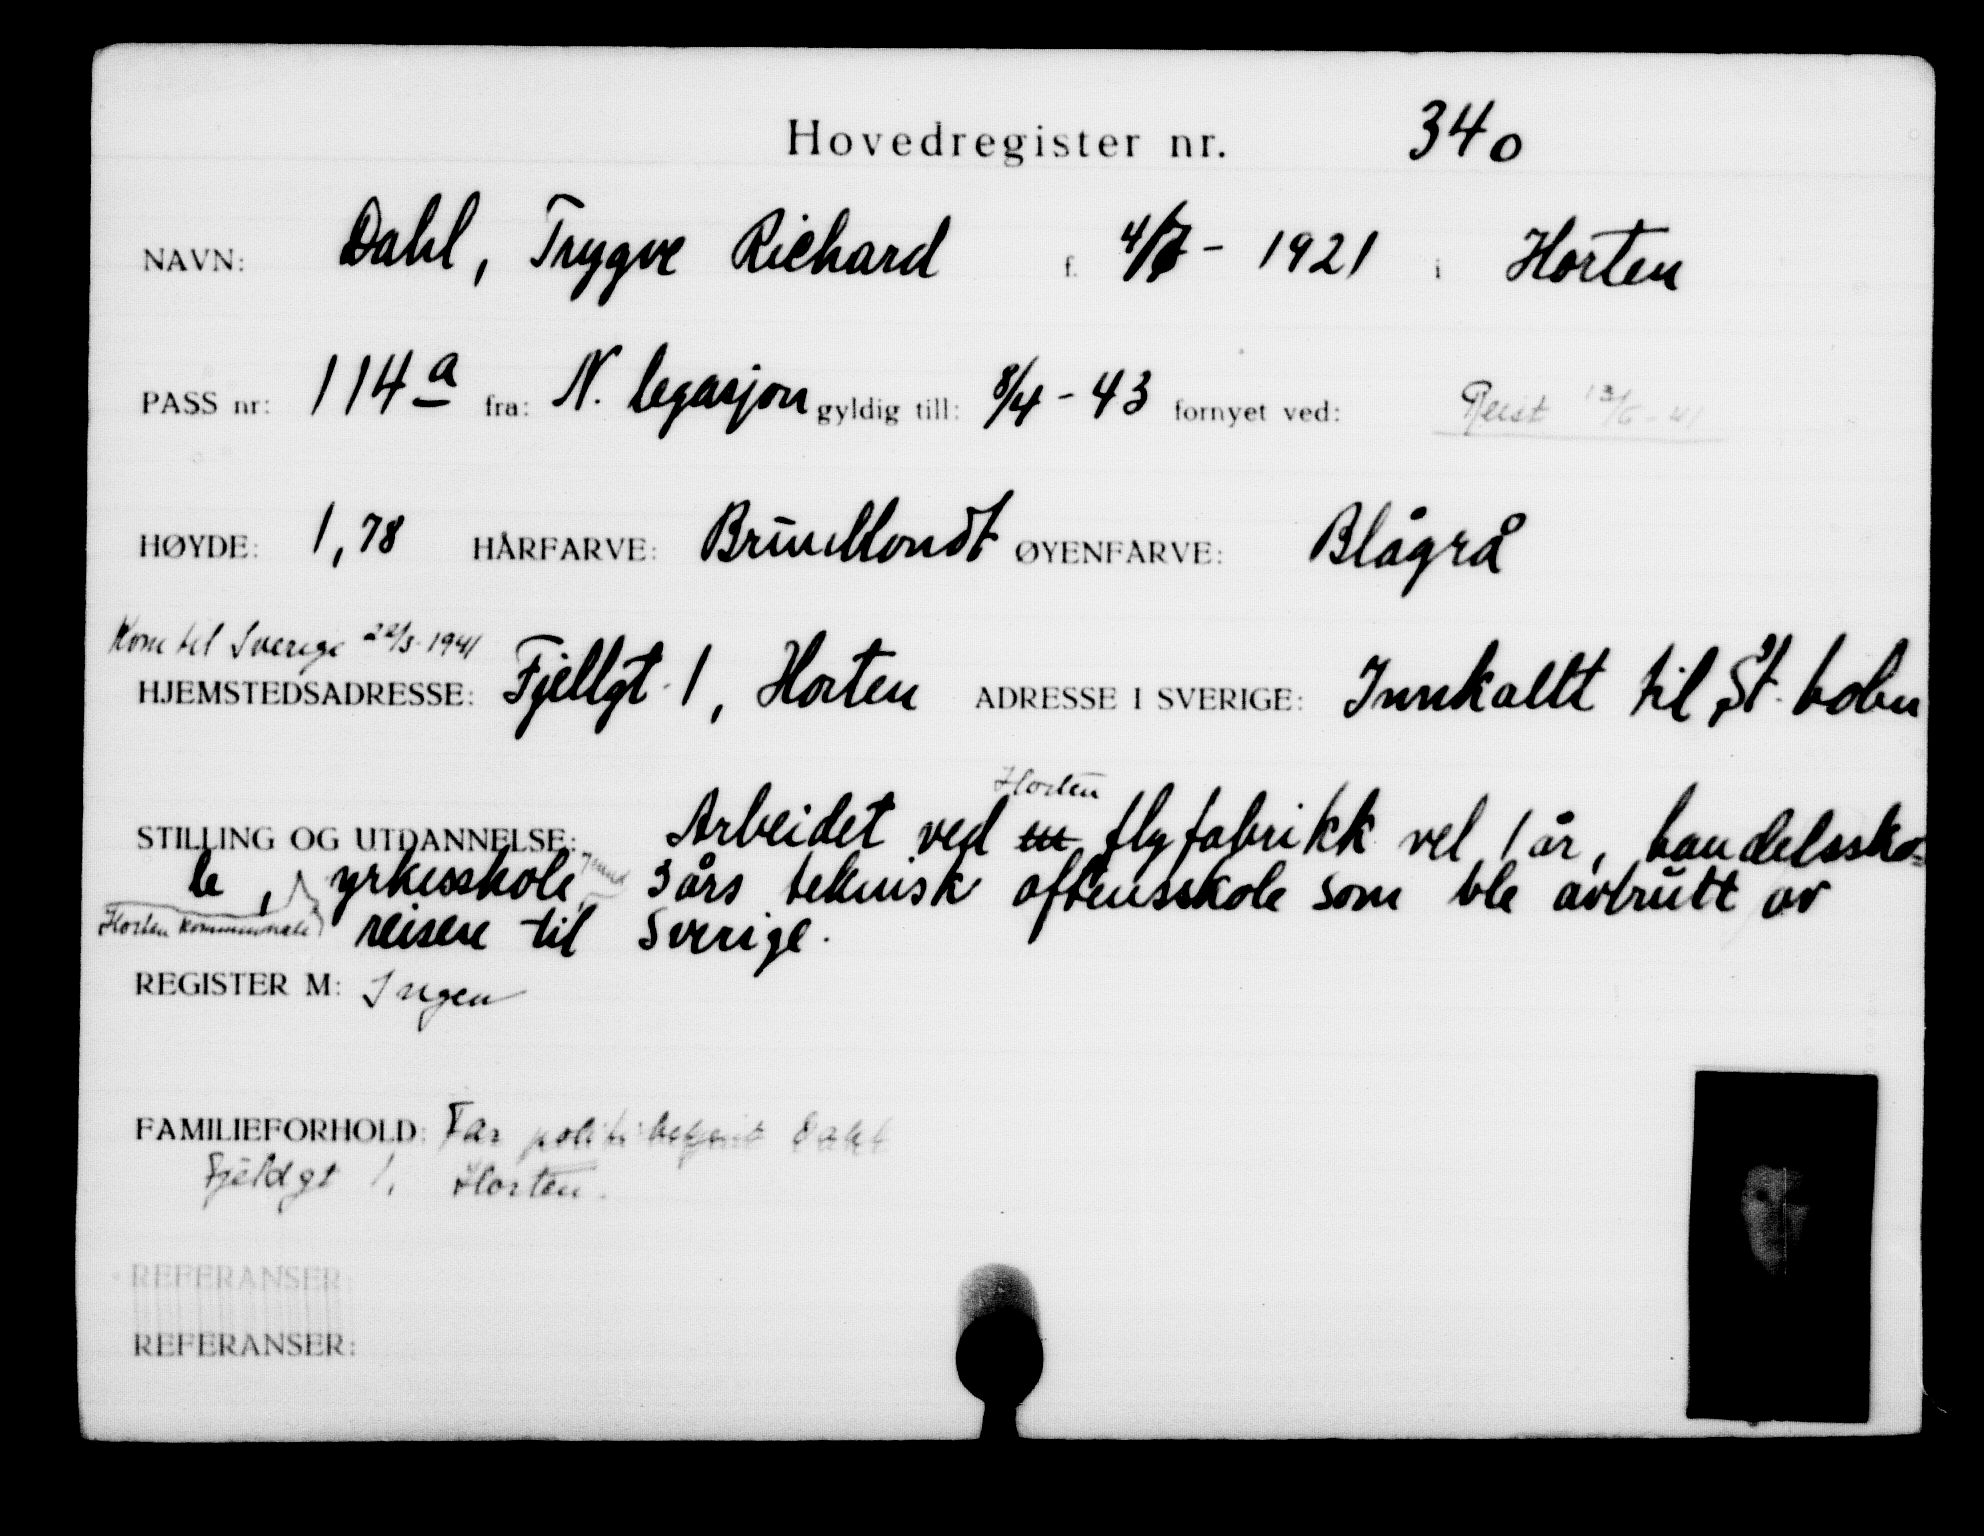 Hovedregister nr. 340
NAVN: Dahl, Trygve Richard f. 4/7 - 1921 i Horten
PASS nr: 114a fra: N. legasjon gyldig till: 8/4 - 43 fornyet ved: Reist 13/6 - 41
HØYDE: 1,78 HÅRFARVE: Brunblondt ØYENFARVE: Blågrå
Kom til Sverige 1941
HJEMSTEDSADRESSE: Fjellgt. 1, Horten ADRESSE I SVERIGE: Innkallt til
Horten
STILLING OG UTDANNELSE: Arbeidet ved flyfabrikk vel 1 år, handelssko-
le, yrkesskole 3 års teknisk aftensskole som ble avbrutt av
Horten kommunale reisen til Sverige.
REGISTER M: Ingen
FAMILIEFORHOLD: Far politibetjent Dahl
Fjeldgt 1, Horten.
REFERANSER:
REFERANSER: